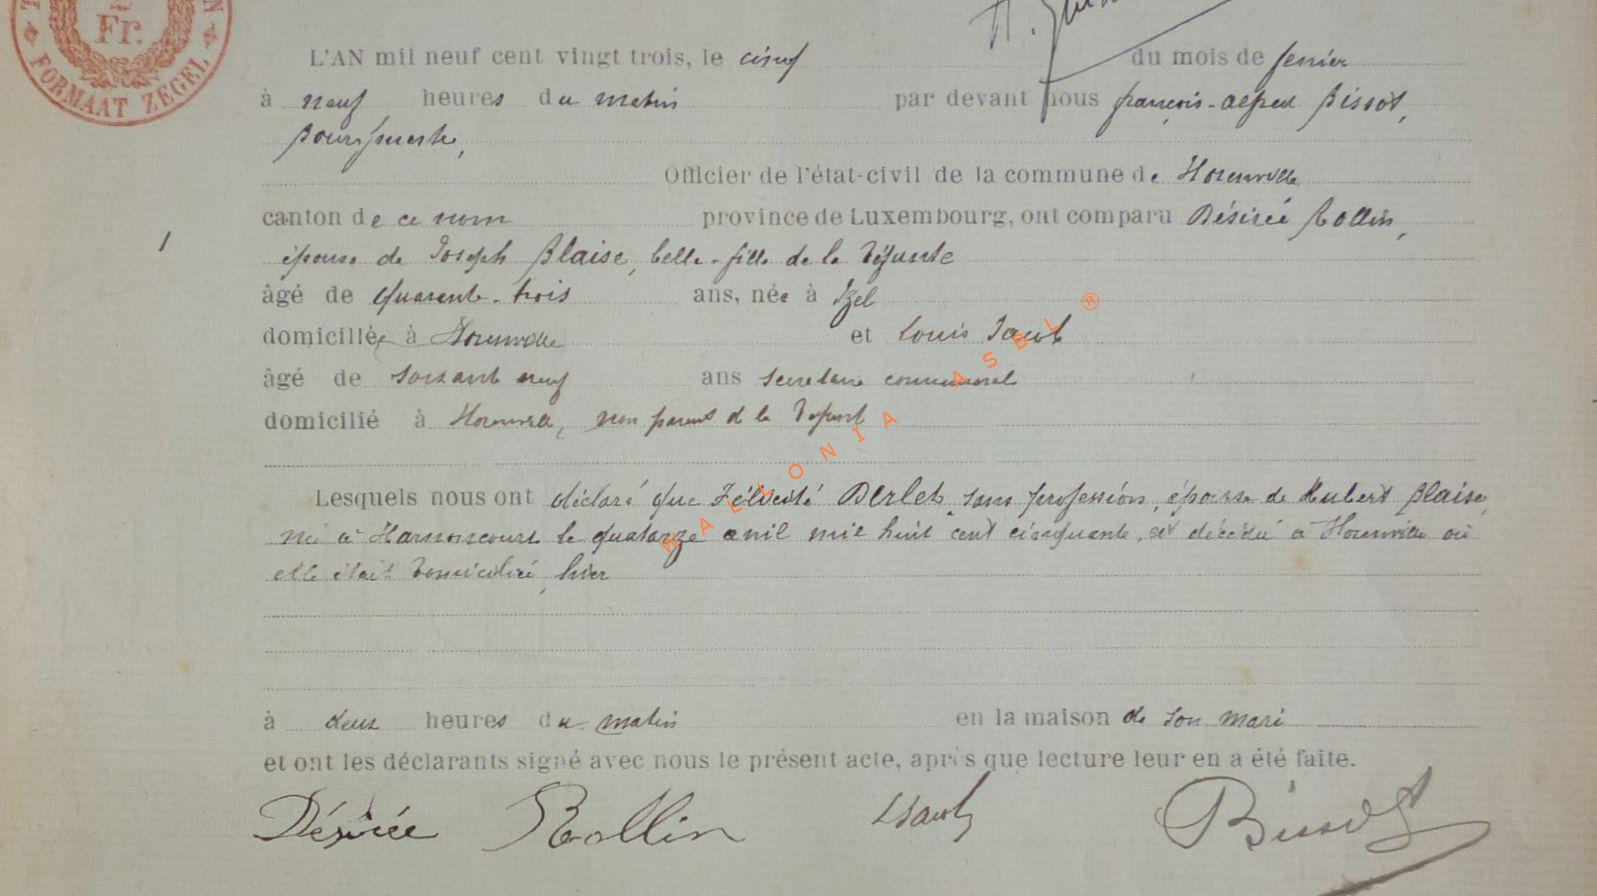 Fr.
FORMAAT ZEGEL
L'AN mil neuf cent vingt trois, le cinq du mois de février
à neuf heures du matin par devant nous françois-alfred Bissot,
Bourgmestre,
Officier de l'état-civil de la commune de Florenville
canton de ce nom province de Luxembourg, ont comparu Désirée Rollin,
épouse de Joseph Blaise, belle-fille de la défunte
âgé de quarante-trois ans, née à Izel
domiciliée à Florenville et Louis Jacob
âgé de soixante neuf ans secrétaire communal
domicilié à Florenville, non parent de la défunte
Lesquels nous ont déclaré que Félicité Derlet, sans profession, épouse de Hubert Blaise,
née à Harnoncourt le quatorze avril mil huit cent cinquante, est décédée à Florenville où
elle était domiciliée, hier
à deux heures du matin en la maison de son mari
et ont les déclarants signé avec nous le présent acte, après que lecture leur en a été faite.
Désirée Rollin LJacob Bissot
WALLONIA ASBL ®